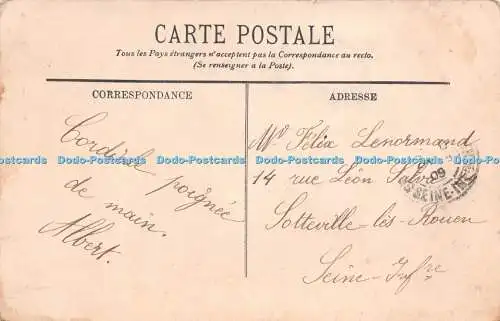 CARTE POSTALE
Tous les Pays étrangers n'acceptent pas la Correspondance au recto.
(Se renseigner à la Poste).
CORRESPONDANCE
Cordiale poignée
de main.
Albert.
ADRESSE
Mr Félix Lenormand
14 rue Léon Salva
Sotteville-lès-Rouen
Seine-Infre
09
SEINE-INF
Dodo-Postcards Dodo-Postcards Dodo-Postcards Dodo-Postcards Dodo-Postcards
Dodo-Postcards Dodo-Postcards Dodo-Postcards Dodo-Postcards Dodo-Postcards